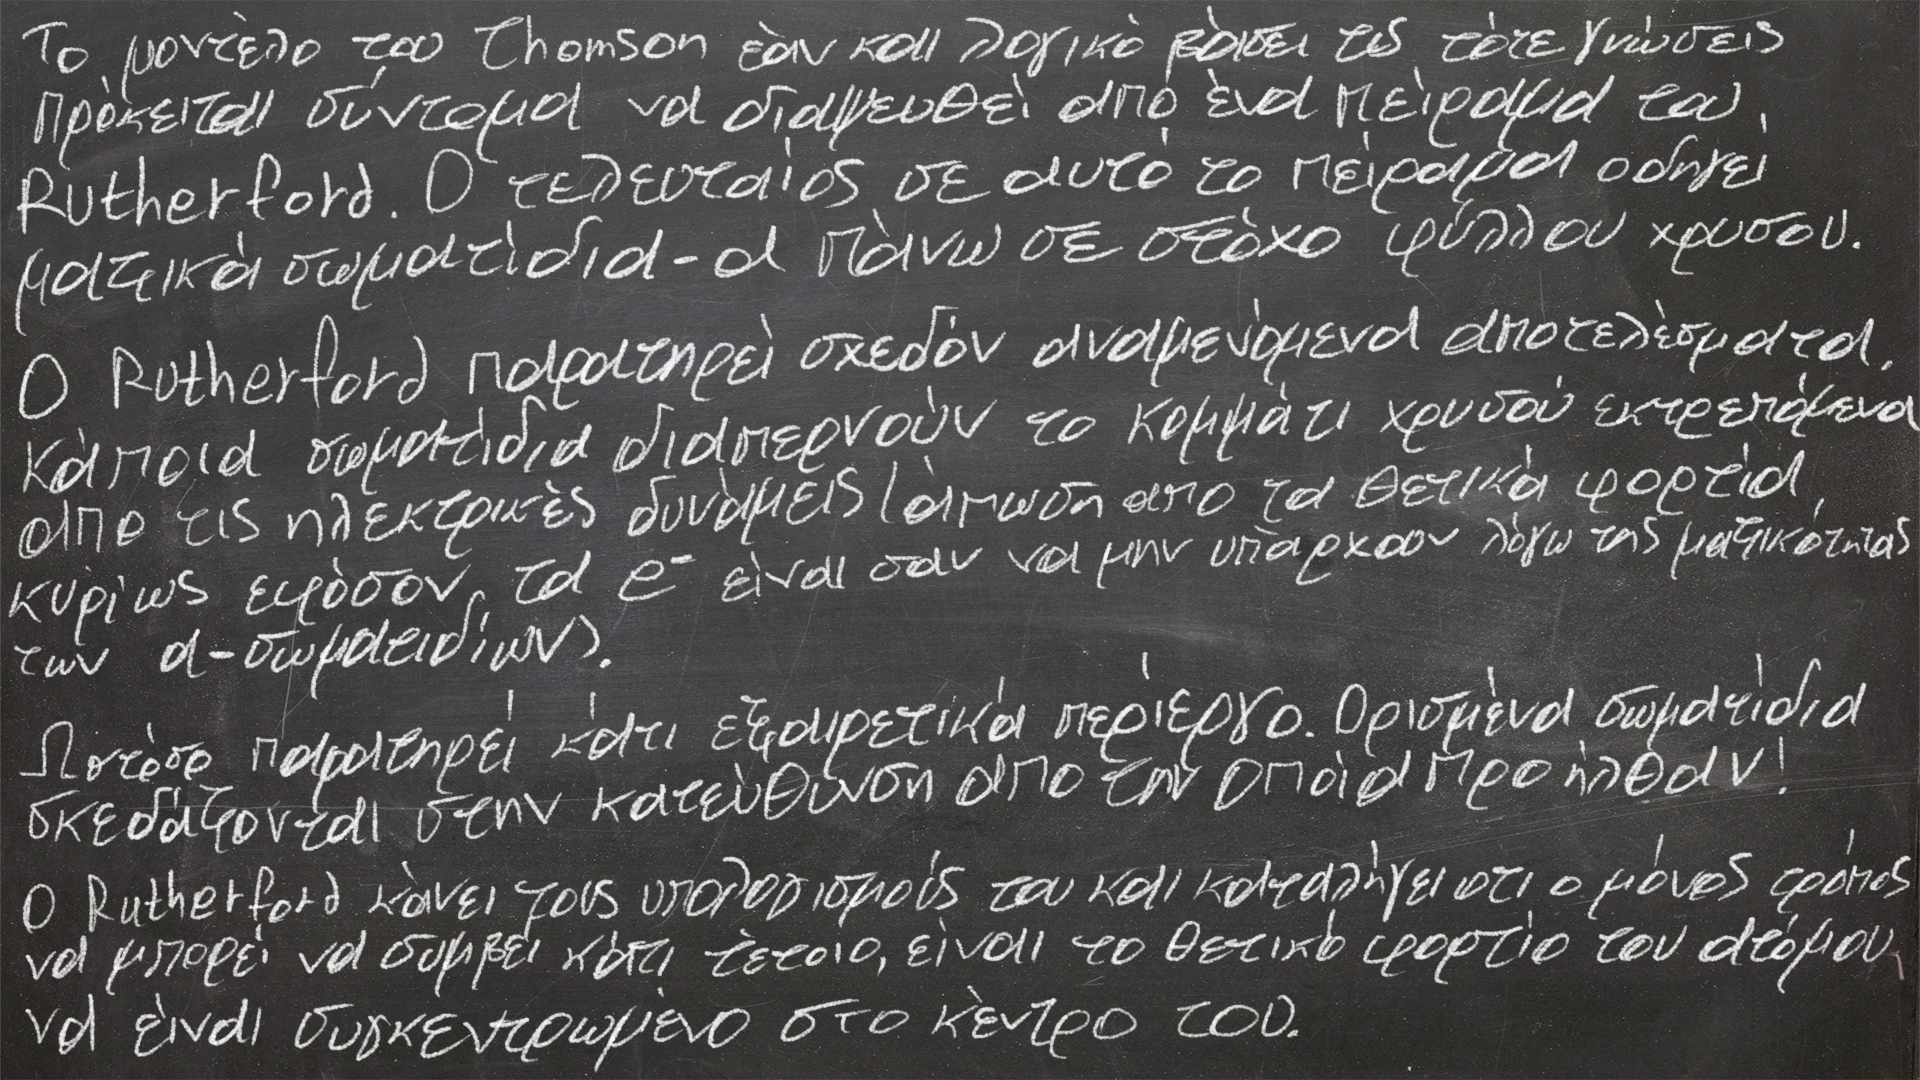 Το μοντέλο του Thomson εάν και λογικό βάσει τις τότε γνώσεις
πρόκειται σύντομα να διαψευθεί από ένα πείραμα του
Rutherford. Ο τελευταίος σε αυτό το πείραμα οδηγεί
μαζικά σωματίδια-α πάνω σε στόχο φύλλου χρυσου.
Ο Rutherford παρατηρεί σχεδόν αναμενόμενα αποτελέσματα,
κάποια σωματίδια διαπερνούν το κομμάτι χρυσού εκτρεπόμενα
απο τις ηλεκτρικές δυνάμεις (άπωση απο τα θετικά φορτία,
κυρίως εφόσον, τα e⁻ είναι σαν να μην υπάρχουν λόγω της μαζικότητας
των α-σωματιδίων).
Ωστόσο παρατηρεί κάτι εξαιρετικά περίεργο. Ορισμένα σωματίδια
σκεδάζονται στην κατεύθυνση απο την οποία προήλθαν!
Ο Rutherford κάνει τους υπολογισμούς του και καταλήγει οτι ο μόνος τρόπος
να μπορεί να συμβεί κάτι τέτοιο, είναι το θετικό φορτίο του ατόμου,
να είναι συγκεντρωμένο στο κέντρο του.